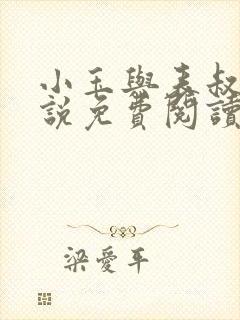 小玉與表叔
說免費閱讀
梁愛平